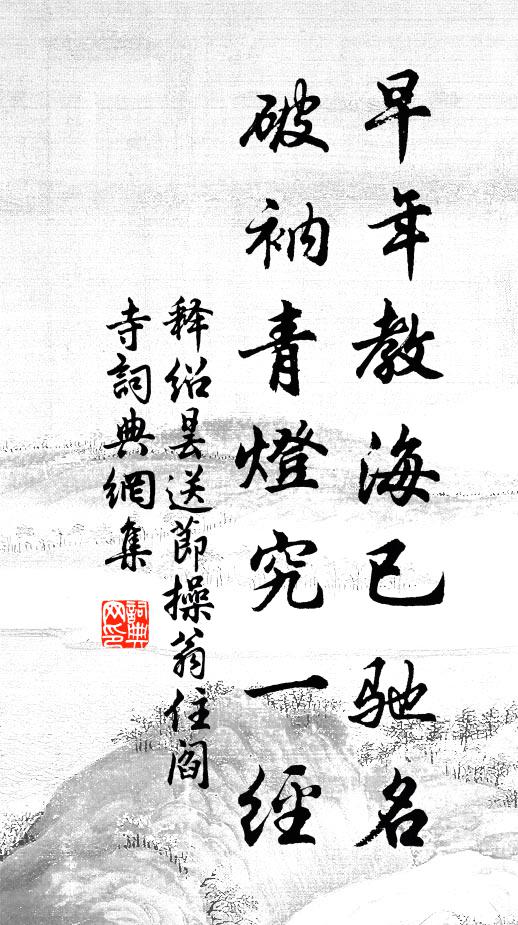 早年教海已驰名
破衲青燈究一經
释绍昙送節操翁住阎
寺詞典網集
詞典网印